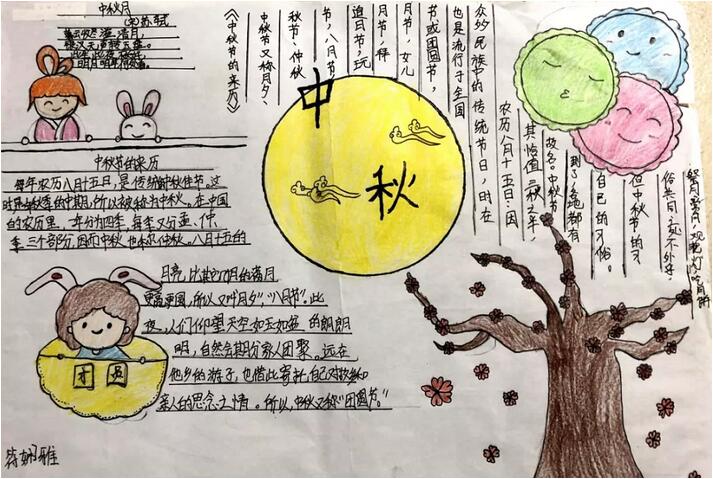 中秋月
(宋)苏轼
明月明年何处看。
《中秋节的来历》
中秋节又称月夕、
秋节、仲秋
节、八月节、
追月节、玩
月节、拜
月节、女儿
节或团圆节,
也是流行于全国
众多民族中的传统节日,时在
农历八月十五日;因
其恰值三秋之半,
故名。中秋节
到了各地都有
自己的习俗。
但中秋节的习
俗类同,
中
秋
中秋节的来历
每年农历八月十五日,是传统的中秋佳节。这
时是秋季的中期,所以被称为中秋。在中国
的农历里,一年分为四季,每季又分孟、仲、
季三个部分,因而中秋也称仲秋。八月十五的
月亮,比其它几月的满月
更圆,所以又叫"月夕","八月节"。此
夜,人们仰望天空如玉如盘的朗朗
明,自然会期分家人团聚。远在
他乡的游子,也借此寄托自己对故乡和
亲人的思念之情。所以,中秋又称"团圆节。"